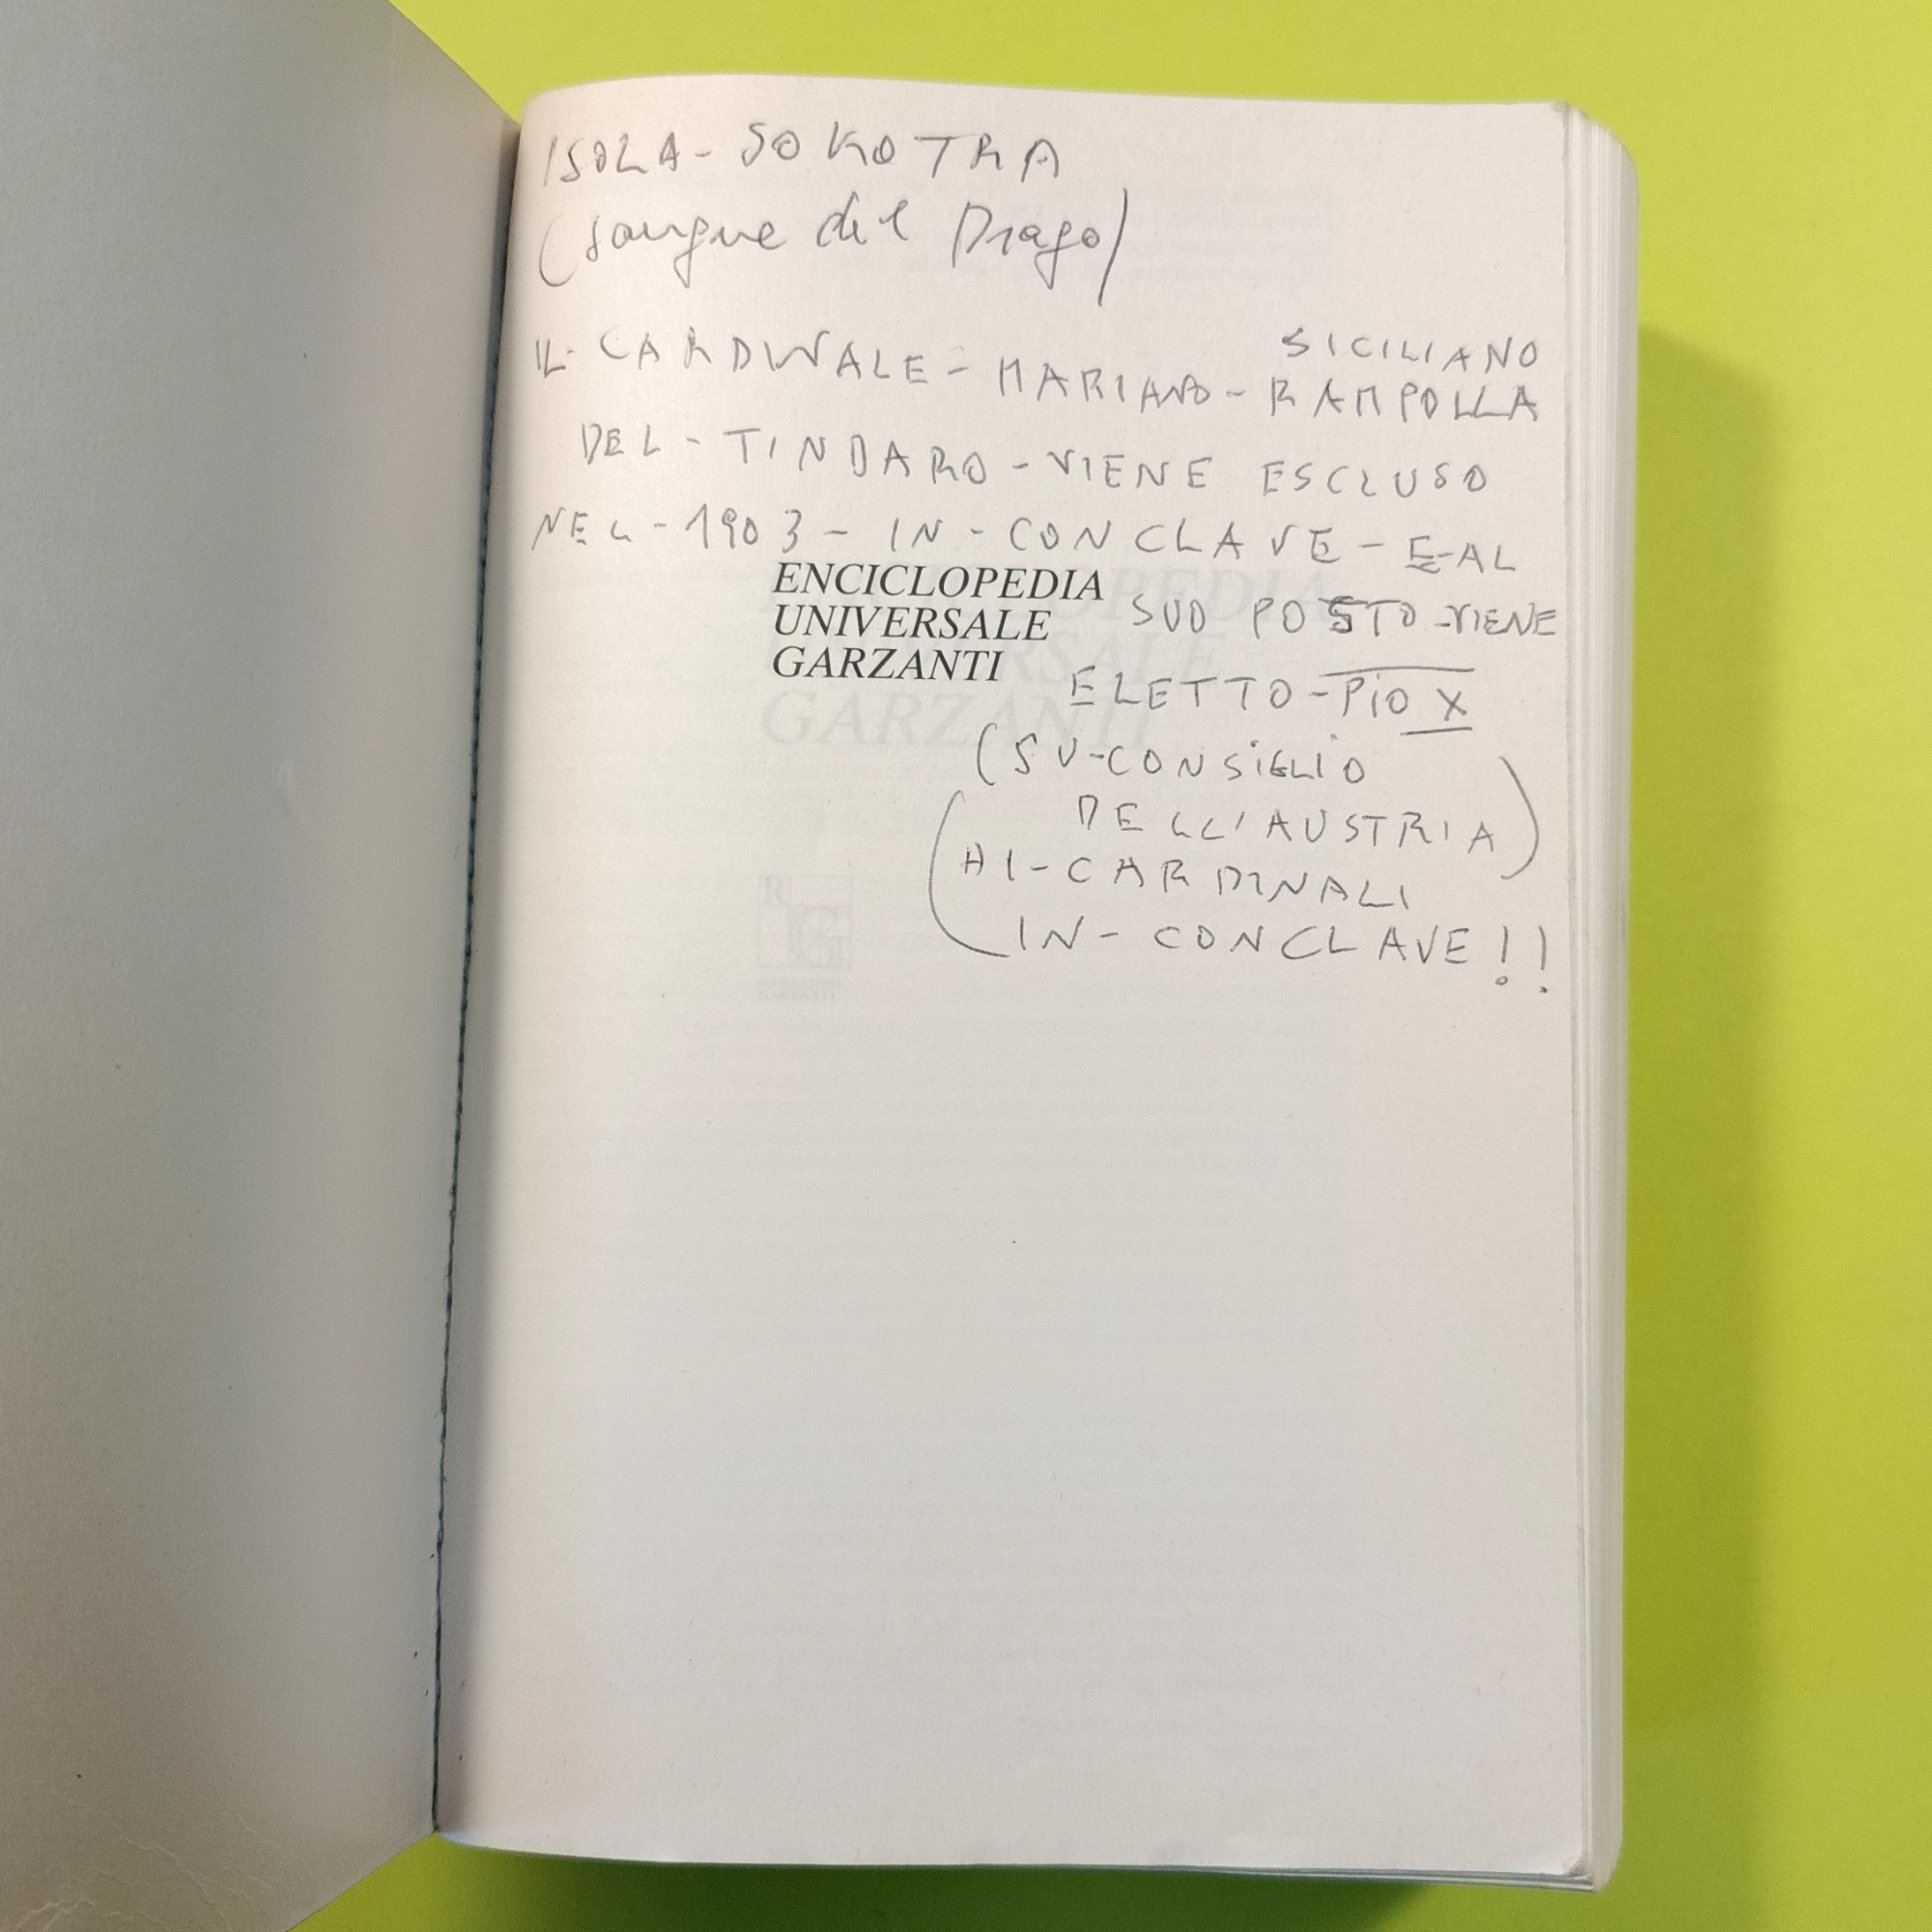 ISOLA - SOKOTRA
(sangue del Drago)
SICILIANO
IL - CARDINALE - MARIANO - RAMPOLLA
DEL - TINDARO - VIENE ESCLUSO
NEL - 1903 - IN - CONCLAVE - E - AL
ENCICLOPEDIA
UNIVERSALE
GARZANTI
SUO POSTO - VIENE
ELETTO - PIO X
(SU - CONSIGLIO
DELL'AUSTRIA)
(AI - CARDINALI
IN - CONCLAVE!!